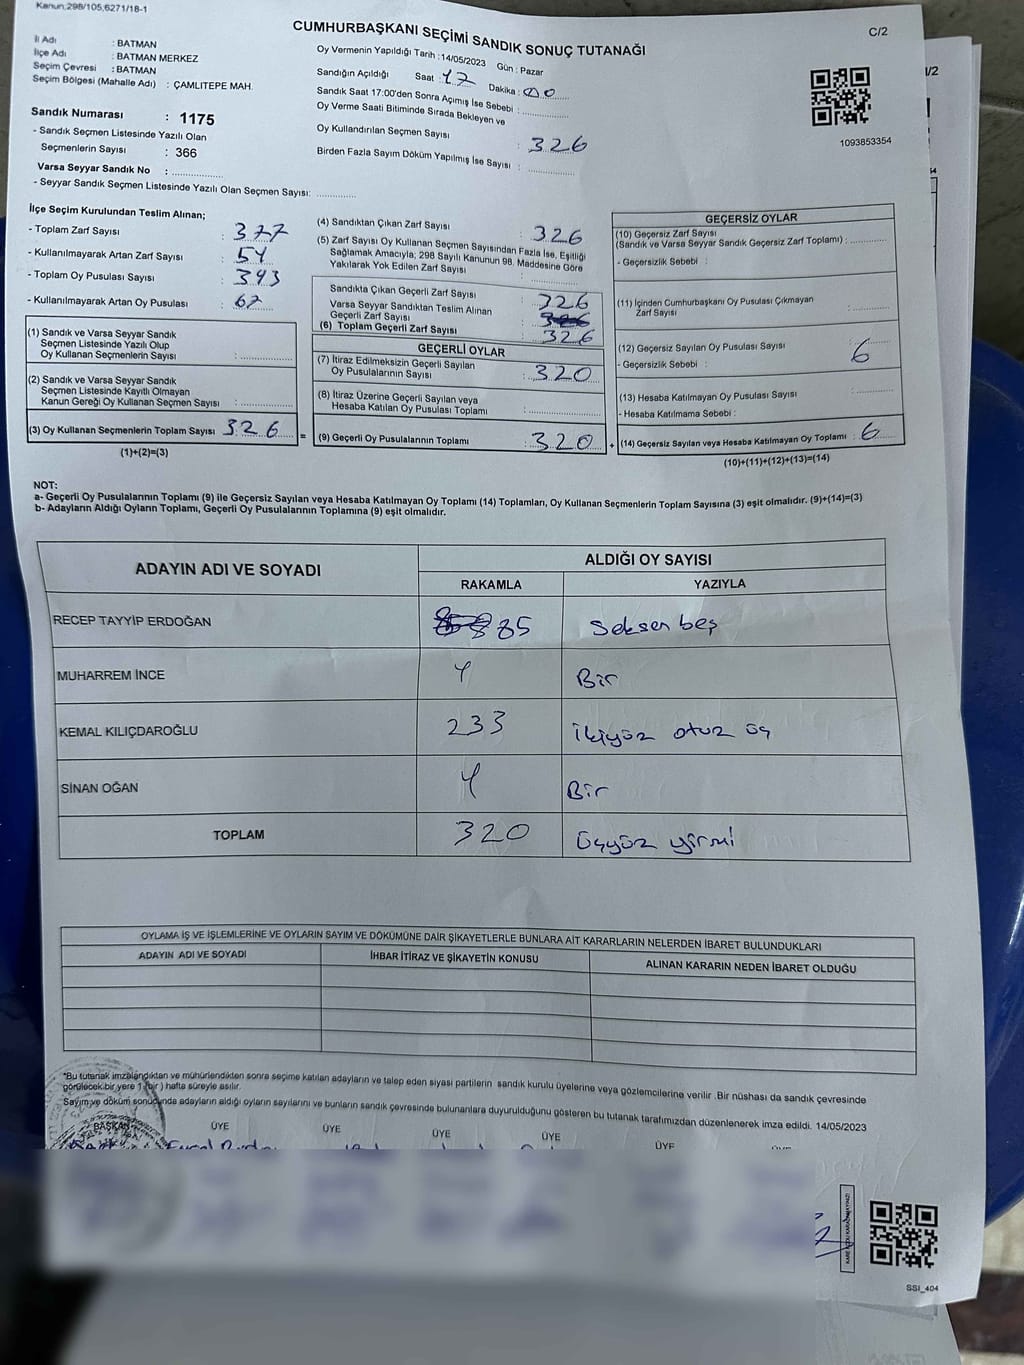 Kanun:298/105,6271/18-1
CUMHURBAŞKANI SEÇİMİ SANDIK SONUÇ TUTANAĞI
C/2
İl Adı : BATMAN
İlçe Adı : BATMAN MERKEZ
Seçim Çevresi : BATMAN
Seçim Bölgesi (Mahalle Adı) : ÇAMLITEPE MAH.
Sandık Numarası : 1175
- Sandık Seçmen Listesinde Yazılı Olan
Seçmenlerin Sayısı : 366
Varsa Seyyar Sandık No :
- Seyyar Sandık Seçmen Listesinde Yazılı Olan Seçmen Sayısı:
Oy Vermenin Yapıldığı Tarih :14/05/2023 Gün : Pazar
Sandığın Açıldığı Saat : 17 Dakika : 00
Sandık Saat 17:00'den Sonra Açımış İse Sebebi :
Oy Verme Saati Bitiminde Sırada Bekleyen ve
Oy Kullandırılan Seçmen Sayısı : 326
Birden Fazla Sayım Döküm Yapılmış İse Sayısı :
1093853354
1/2
İlçe Seçim Kurulundan Teslim Alınan;
- Toplam Zarf Sayısı : 377
- Kullanılmayarak Artan Zarf Sayısı : 51
- Toplam Oy Pusulası Sayısı : 393
- Kullanılmayarak Artan Oy Pusulası : 67
(1) Sandık ve Varsa Seyyar Sandık
Seçmen Listesinde Yazılı Olup
Oy Kullanan Seçmenlerin Sayısı :
(2) Sandık ve Varsa Seyyar Sandık
Seçmen Listesinde Kayıtlı Olmayan
Kanun Gereği Oy Kullanan Seçmen Sayısı :
(3) Oy Kullanan Seçmenlerin Toplam Sayısı 326
(1)+(2)=(3)
=
(4) Sandıktan Çıkan Zarf Sayısı : 326
(5) Zarf Sayısı Oy Kullanan Seçmen Sayısından Fazla İse, Eşitliği
Sağlamak Amacıyla; 298 Sayılı Kanunun 98. Maddesine Göre
Yakılarak Yok Edilen Zarf Sayısı :
Sandıkta Çıkan Geçerli Zarf Sayısı : 326
Varsa Seyyar Sandıktan Teslim Alınan
Geçerli Zarf Sayısı :
(6) Toplam Geçerli Zarf Sayısı : 326
GEÇERLİ OYLAR
(7) İtiraz Edilmeksizin Geçerli Sayılan
Oy Pusulalarının Sayısı : 320
(8) İtiraz Üzerine Geçerli Sayılan veya
Hesaba Katılan Oy Pusulası Toplamı :
(9) Geçerli Oy Pusulalarının Toplamı : 320
+
GEÇERSİZ OYLAR
(10) Geçersiz Zarf Sayısı
(Sandık ve Varsa Seyyar Sandık Geçersiz Zarf Toplamı) :
- Geçersizlik Sebebi :
(11) İçinden Cumhurbaşkanı Oy Pusulası Çıkmayan
Zarf Sayısı :
(12) Geçersiz Sayılan Oy Pusulası Sayısı : 6
- Geçersizlik Sebebi :
(13) Hesaba Katılmayan Oy Pusulası Sayısı :
- Hesaba Katılmama Sebebi :
(14) Geçersiz Sayılan veya Hesaba Katılmayan Oy Toplamı : 6
(10)+(11)+(12)+(13)=(14)
NOT:
a- Geçerli Oy Pusulalarının Toplamı (9) ile Geçersiz Sayılan veya Hesaba Katılmayan Oy Toplamı (14) Toplamları, Oy Kullanan Seçmenlerin Toplam Sayısına (3) eşit olmalıdır. (9)+(14)=(3)
b- Adayların Aldığı Oyların Toplamı, Geçerli Oy Pusulalarının Toplamına (9) eşit olmalıdır.
ADAYIN ADI VE SOYADI
ALDIĞI OY SAYISI
RAKAMLA YAZIYLA
RECEP TAYYİP ERDOĞAN 85 Seksen beş
MUHARREM İNCE 1 Bir
KEMAL KILIÇDAROĞLU 233 ikiyüz otuz üç
SİNAN OĞAN 1 Bir
TOPLAM 320 üçyüz yirmi
OYLAMA İŞ VE İŞLEMLERİNE VE OYLARIN SAYIM VE DÖKÜMÜNE DAİR ŞİKAYETLERLE BUNLARA AİT KARARLARIN NELERDEN İBARET BULUNDUKLARI
ADAYIN ADI VE SOYADI İHBAR İTİRAZ VE ŞİKAYETİN KONUSU ALINAN KARARIN NEDEN İBARET OLDUĞU
*Bu tutanak imzalandıktan ve mühürlendikten sonra seçime katılan adayların ve talep eden siyasi partilerin sandık kurulu üyelerine veya gözlemcilerine verilir .Bir nüshası da sandık çevresinde
görülecek bir yere 1 (bir ) hafta süreyle asılır.
Sayım ve döküm sonucunda adayların aldığı oyların sayılarını ve bunların sandık çevresinde bulunanlara duyurulduğunu gösteren bu tutanak tarafımızdan düzenlenerek imza edildi. 14/05/2023
BAŞKAN ÜYE ÜYE ÜYE ÜYE ÜYE
SSI_404